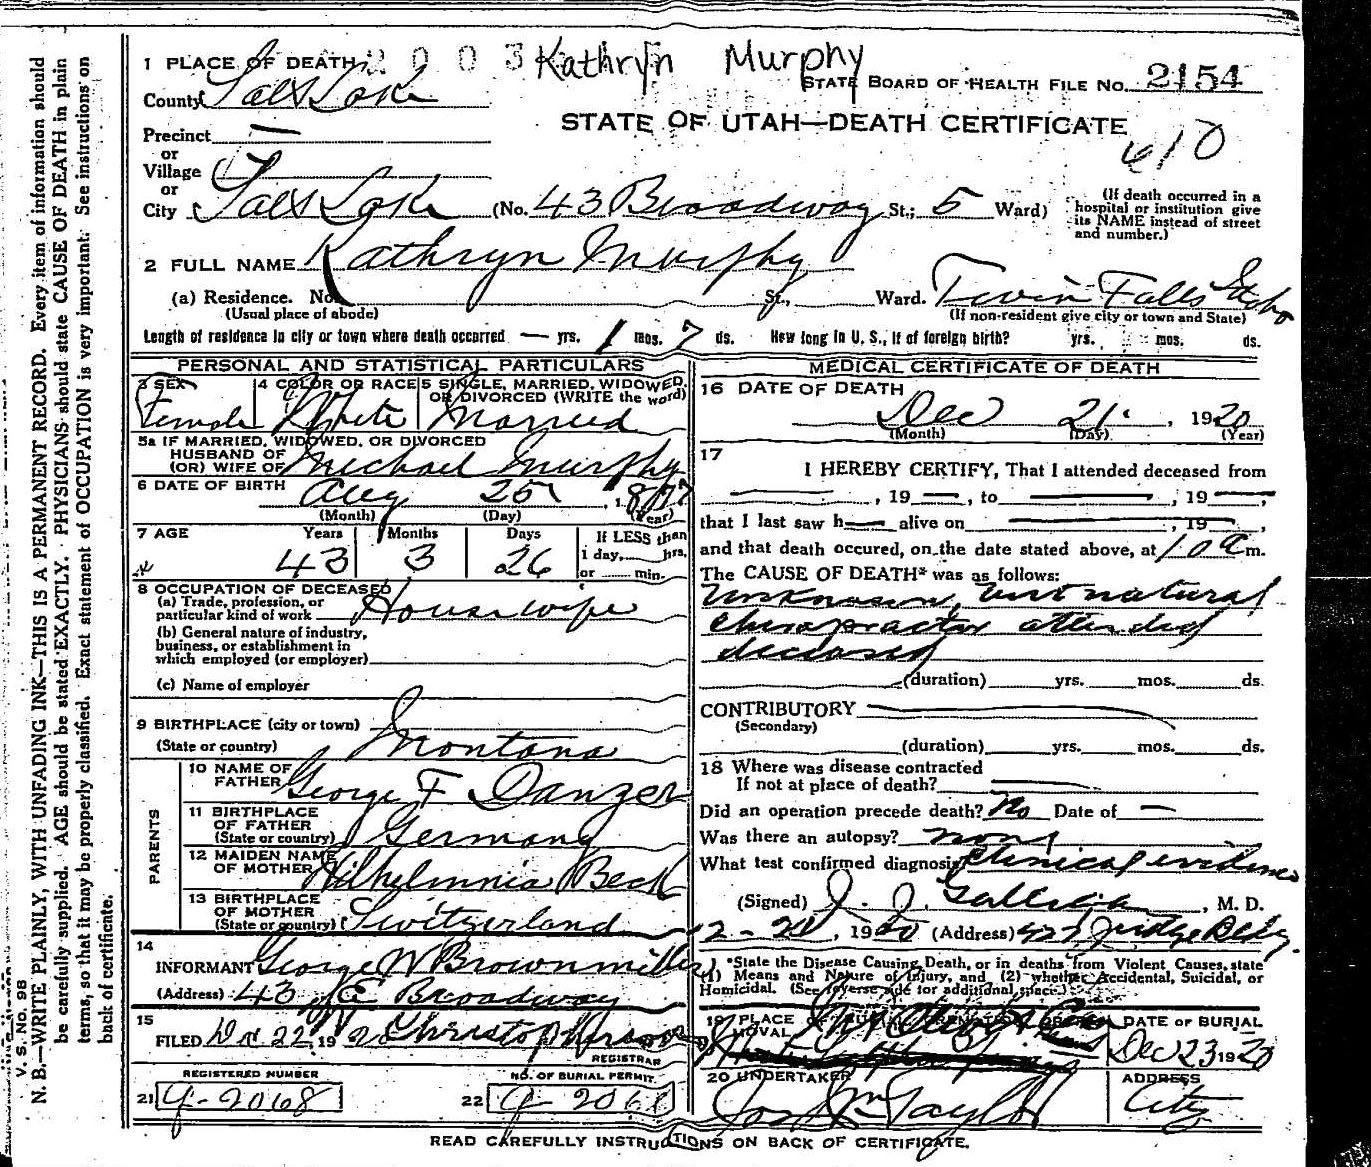 N. B.—WRITE PLAINLY, WITH UNFADING INK—THIS IS A PERMANENT RECORD. Every item of information should
be carefully supplied. AGE should be stated EXACTLY. PHYSICIANS should state CAUSE OF DEATH in plain
terms, so that it may be properly classified. Exact statement of OCCUPATION is very important. See instructions on
back of certificate.
V. S. No. 98
2003 Kathryn Murphy
1 PLACE OF DEATH
STATE BOARD OF HEALTH FILE NO. 2154
County Salt Lake
STATE OF UTAH—DEATH CERTIFICATE
610
Precinct —
or
Village
or
City Salt Lake (No. 43 Broadway St.; 5 Ward)
(If death occurred in a
hospital or institution give
its NAME instead of street
and number.)
2 FULL NAME Kathryn Murphy
(a) Residence. No. St., Ward. Twin Falls Idaho
(Usual place of abode) (If non-resident give city or town and State)
Length of residence in city or town where death occurred — yrs. 1 mos. 7 ds. How long in U. S., if of foreign birth? yrs. mos. ds.
PERSONAL AND STATISTICAL PARTICULARS
3 SEX Female
4 COLOR OR RACE White
5 SINGLE, MARRIED, WIDOWED, OR DIVORCED (WRITE the word) Married
5a IF MARRIED, WIDOWED, OR DIVORCED
HUSBAND OF
(OR) WIFE OF Michael Murphy
6 DATE OF BIRTH Aug 25, 1877
(Month) (Day) (Year)
7 AGE Years Months Days If LESS than
43 3 26 1 day, hrs.
or min.
8 OCCUPATION OF DECEASED
(a) Trade, profession, or
particular kind of work Housewife
(b) General nature of industry,
business, or establishment in
which employed (or employer)
(c) Name of employer
9 BIRTHPLACE (city or town)
(State or country) Montana
PARENTS
10 NAME OF
FATHER George F Danzer
11 BIRTHPLACE
OF FATHER
(State or country) Germany
12 MAIDEN NAME
OF MOTHER Wilhelminia Beck
13 BIRTHPLACE
OF MOTHER
(State or country) Switzerland
14
INFORMANT George W Brownmiller
(Address) 43 E Broadway
15
FILED Dec 22, 1920
REGISTRAR
REGISTERED NUMBER NO. OF BURIAL PERMIT.
21 9-2068 22 9 2068
MEDICAL CERTIFICATE OF DEATH
16 DATE OF DEATH
Dec 21, 1920
(Month) (Day) (Year)
17
I HEREBY CERTIFY, That I attended deceased from
— , 19 — , to — , 19 —
that I last saw h— alive on — , 19 — ,
and that death occured, on the date stated above, at 10 a m.
The CAUSE OF DEATH* was as follows:
Unknown, but natural
chiropractor attended
deceased
(duration) yrs. mos. ds.
CONTRIBUTORY —
(Secondary)
(duration) yrs. mos. ds.
18 Where was disease contracted
If not at place of death? —
Did an operation precede death? No Date of —
Was there an autopsy? none
What test confirmed diagnosis Clinical evidence
(Signed) J. J. , M. D.
12-21, 1920 (Address) 427 Judge Bldg.
*State the Disease Causing Death, or in deaths from Violent Causes, state
(1) Means and Nature of Injury, and (2) whether Accidental, Suicidal, or
Homicidal. (See reverse side for additional space.)
19 PLACE
DATE OF BURIAL
Dec 23 1920
20 UNDERTAKER
Jos Wm Taylor
ADDRESS
City
READ CAREFULLY INSTRUCTIONS ON BACK OF CERTIFICATE.